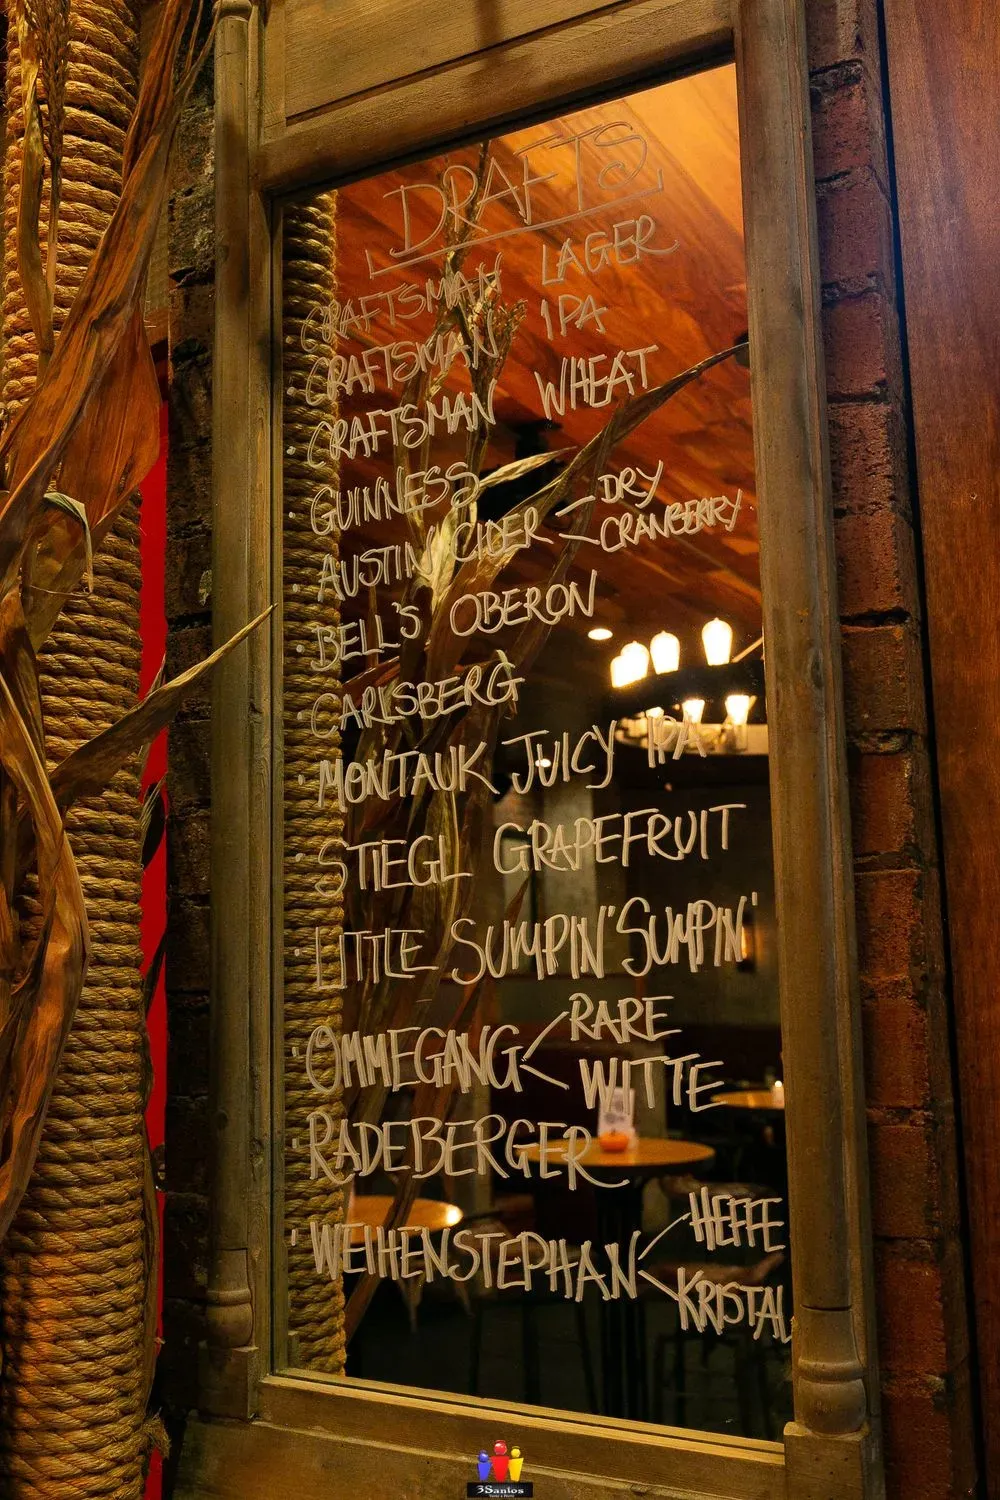 DRAFTS
CRAFTSMAN LAGER
· CRAFTSMAN IPA
· CRAFTSMAN WHEAT
· GUINNESS
· AUSTIN CIDER DRY
CRANBERRY
· BELL'S OBERON
· CARLSBERG
· MONTAUK JUICY IPA
· STIEGL GRAPEFRUIT
· LITTLE SUMPIN' SUMPIN'
· OMMEGANG RARE
WITTE
· RADEBERGER
· WEIHENSTEPHAN HEFFE
KRISTAL
3Santos